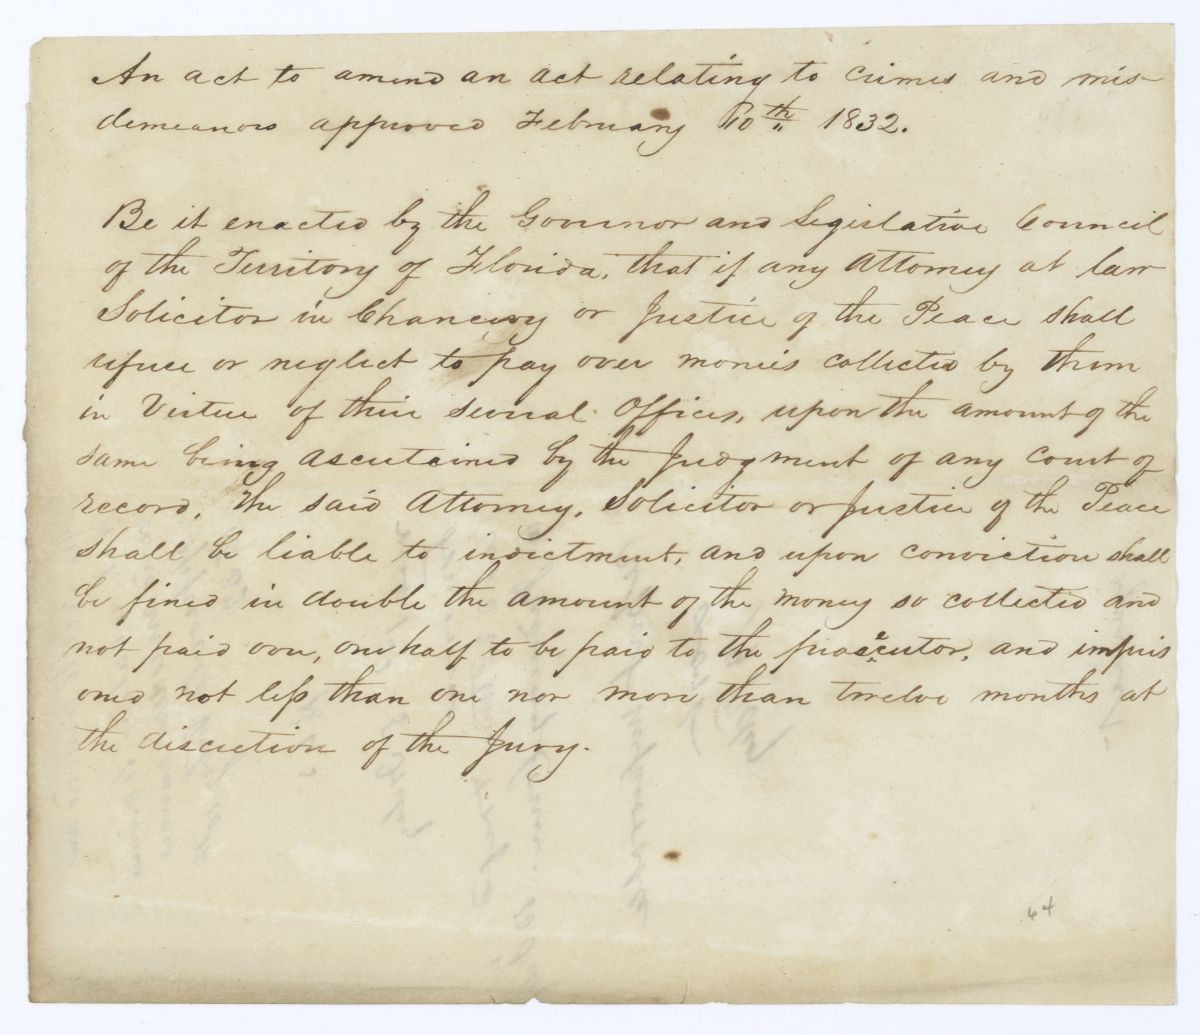 An act to amend an act relating to crimes and mis-
demeanors approved February 10th 1832.
Be it enacted by the Governor and Legislative Council
of the Territory of Florida, that if any Attorney at law
Solicitor in Chancery or Justice of the Peace shall
refuse or neglect to pay over monies collected by them
in Virtue of their several Offices, upon the amount of the
same being ascertained by the Judgment of any Court of
record, The said Attorney, Solicitor or Justice of the Peace
shall be liable to indictment, and upon conviction shall
be fined in double the amount of the money so collected and
not paid over, one half to be paid to the prosecutor, and impris
oned not less than one nor more than twelve months at
the discretion of the Jury.
64